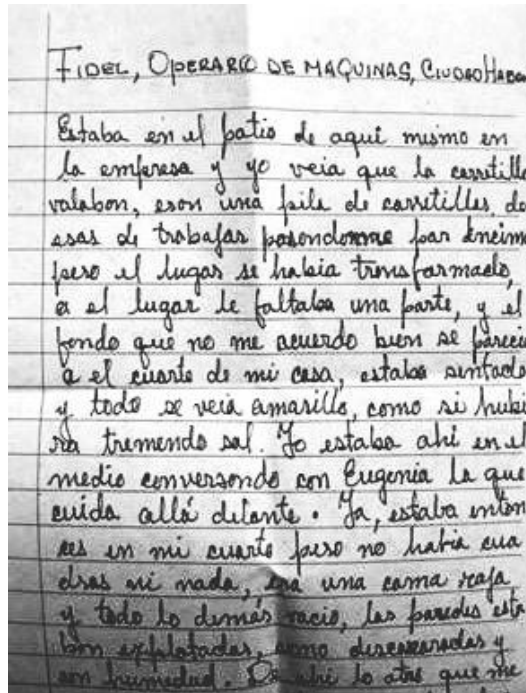 FIDEL, OPERARIO DE MAQUINAS, CIUDAD HABAN
Estaba en el patio de aquí mismo en
la empresa y yo veia que la carretilla
valabon, eran una pila de carretillas, de
esas de trabajar pasondome por encima
pero el lugar se habia transformado,
a el lugar le faltaba una parte, y el
fondo que no me acuerdo bien se parecia
a el cuarto de mi casa, estaba sentado
y todo se veia amarillo, como si hubie
ra tremendo sol. Yo estaba ahi en el
medio conversando con Eugenia la que
cuida allá delante. Ya, estaba enton
ces en mi cuarto pero no habia cua
dros ni nada, era una cama roja
y todo lo demás vacio, las paredes esta
ban explotadas, como descascaradas y
con humedad. De ahi lo otro que me